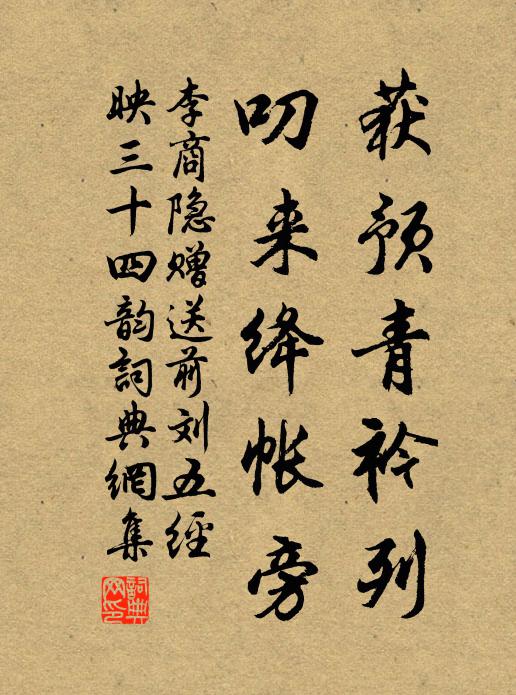 获预青衿列
叨来绛帐旁
李商隐赠送前刘五經
映三十四韵詞典網集
詞典网印